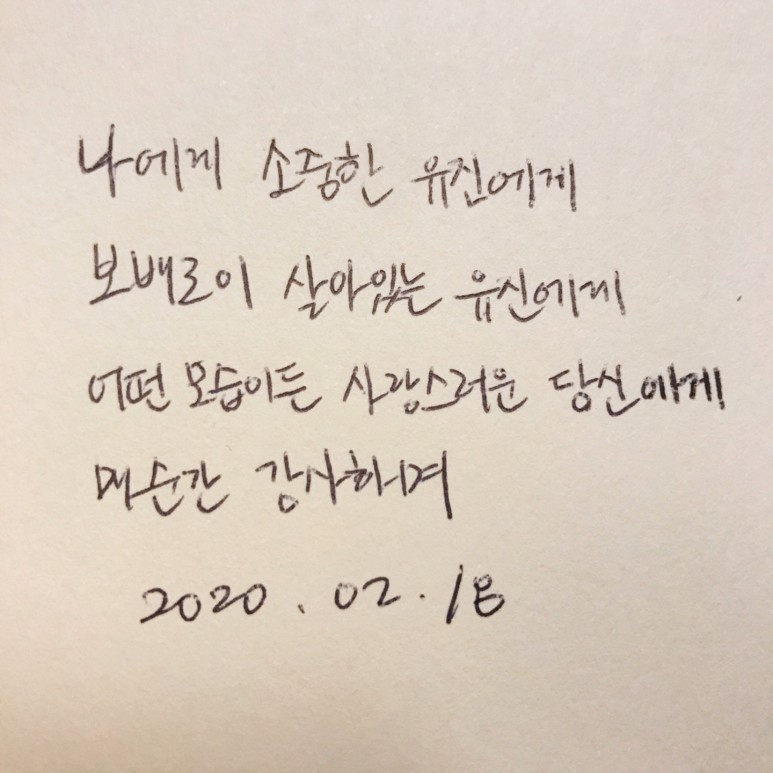 나에게 소중한 유진에게
보배로이 살아있는 유진에게
어떤 모습이든 사랑스러운 당신에게
매순간 감사하며
2020.02.18